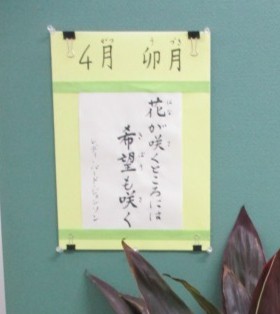 4月 卯月
花が咲くところには
希望も咲く
レディ・バード・ジョンソン